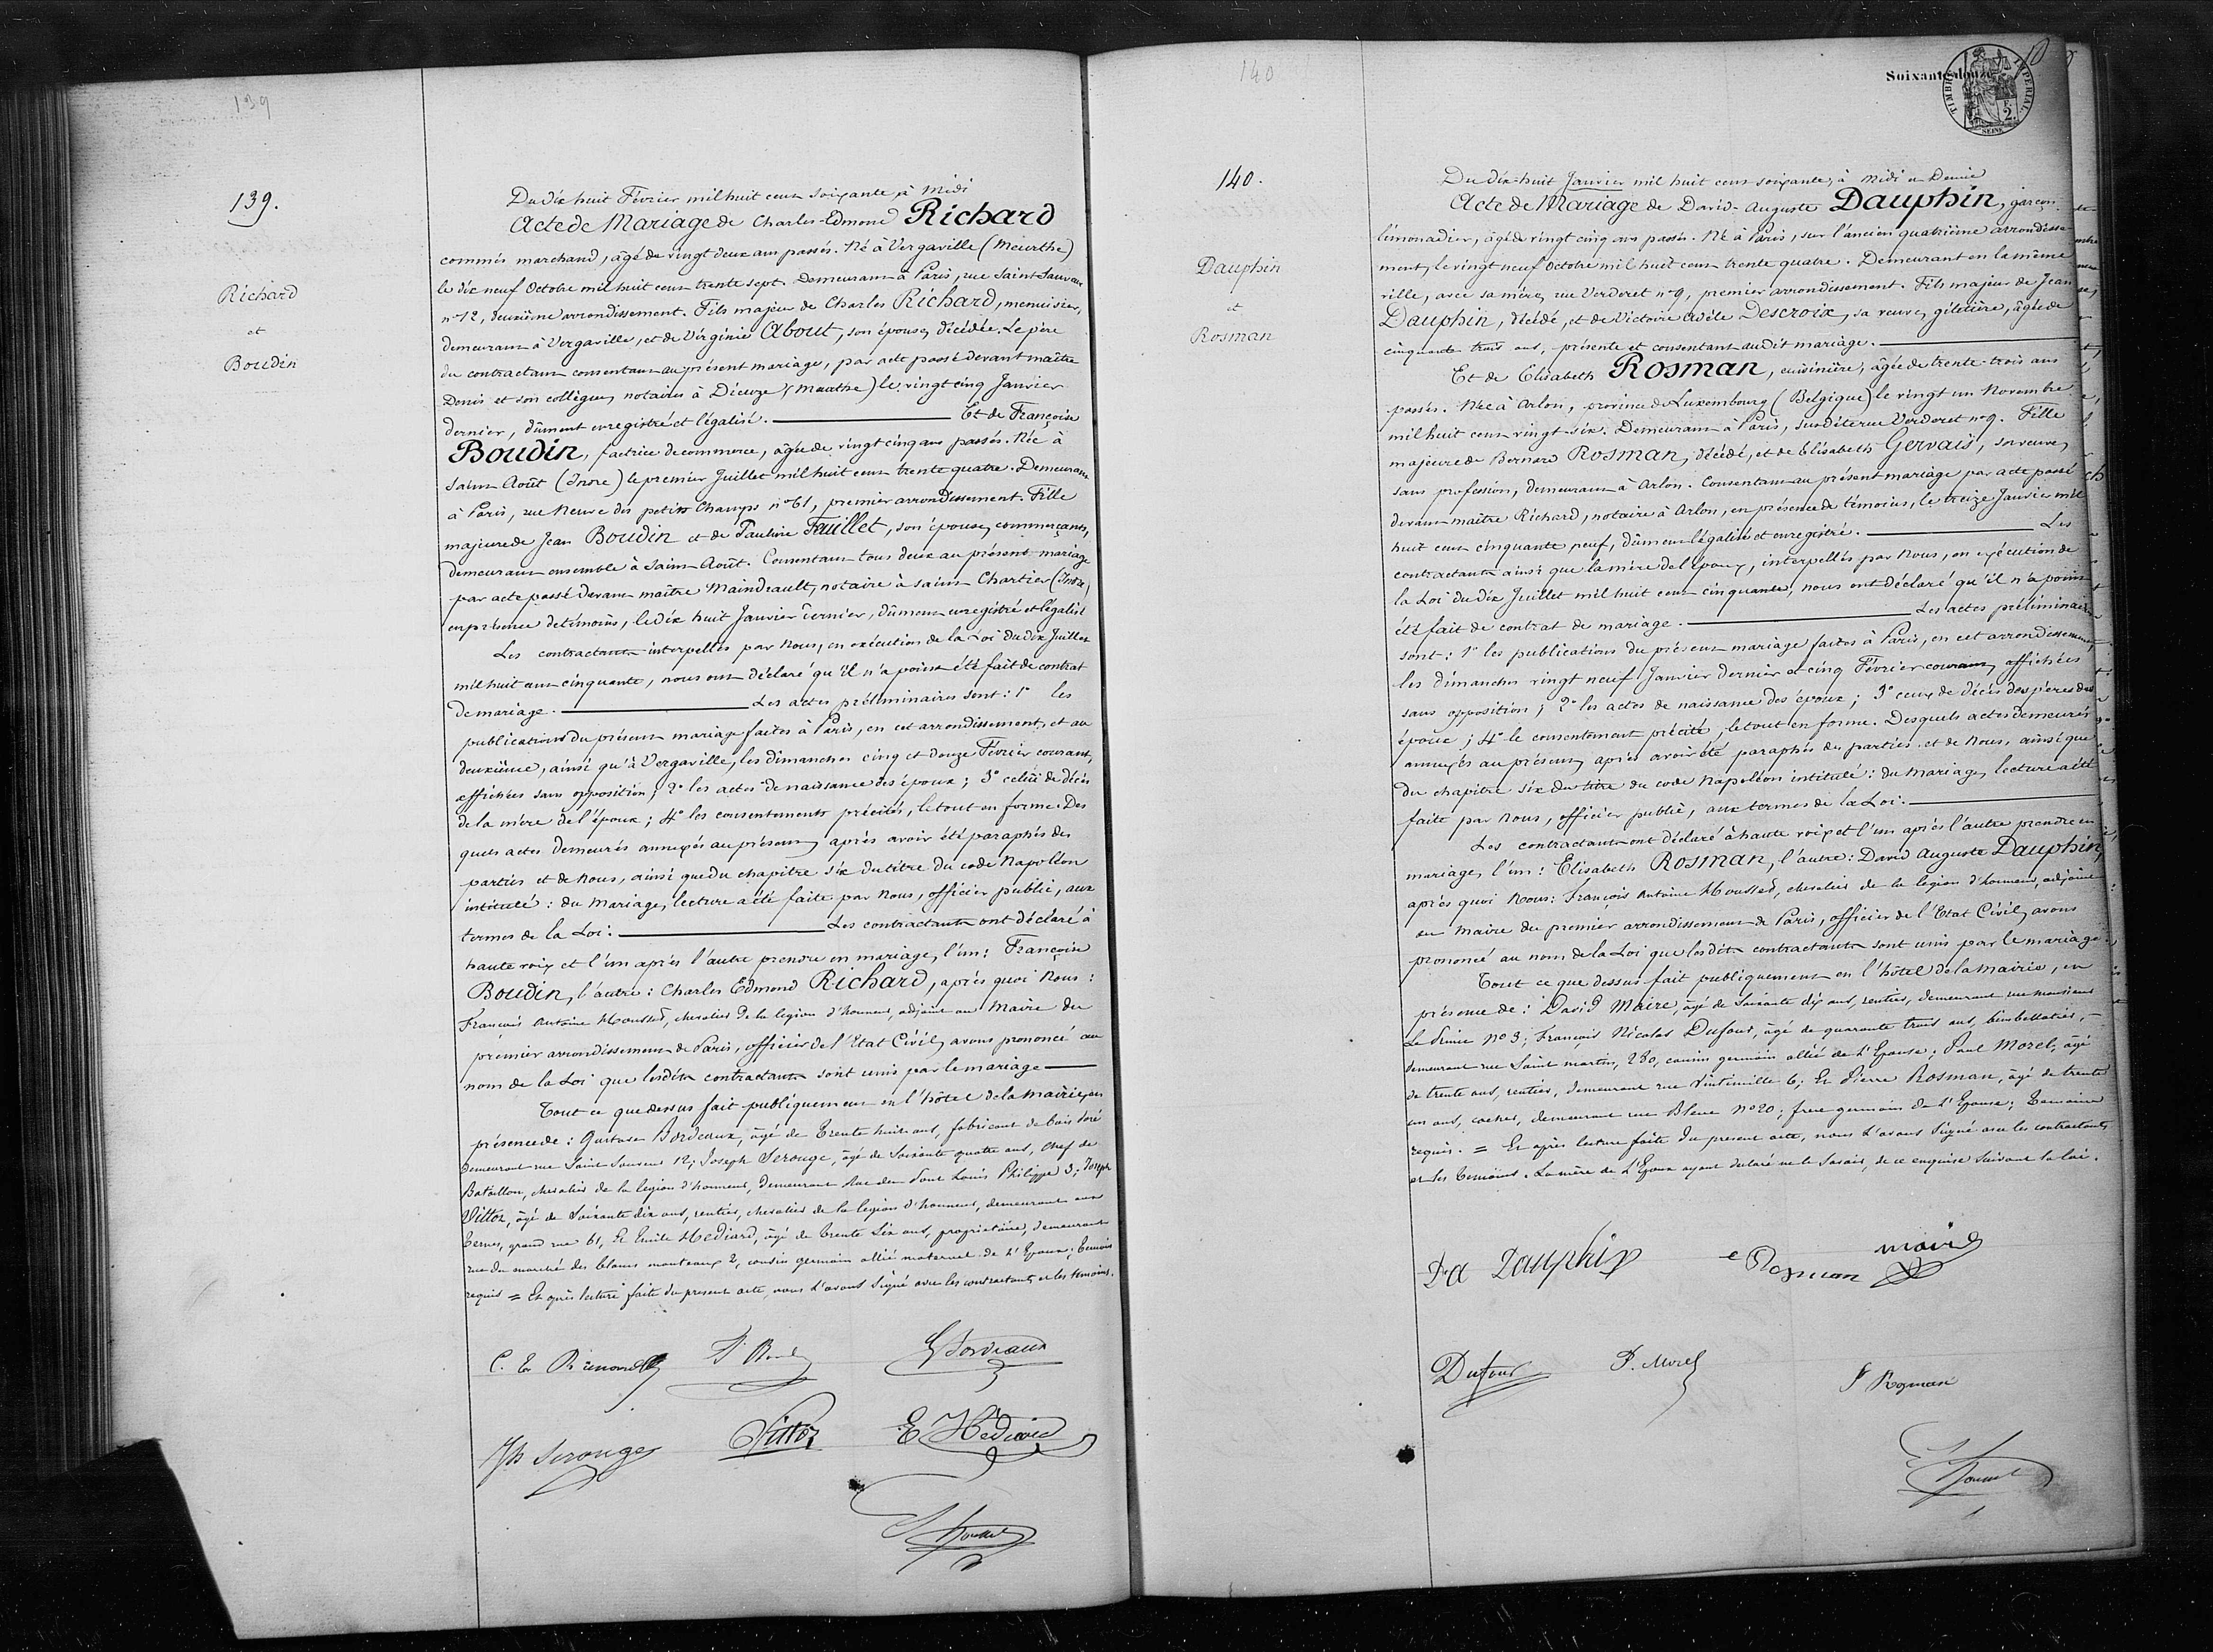 139
139.
Richard
et
Boudin
Du dix huit Février mil huit cent soixante, à midi
Acte de Mariage de Charles-Edmond Richard
commis marchand, âgé de vingt deux ans passés. Né à Vergaville (Meurthe)
le dix neuf Octobre mil huit cent trente sept. Demeurant à Paris, rue Saint Sauveur
n° 12, deuxième arrondissement. Fils majeur de Charles Richard, menuisier,
demeurant à Vergaville, et de Virginie About, son épouse, décédée. Le père
du contractant consentant au présent mariage, par acte passé devant maître
Denis et son collègue, notaires à Dieuze (Meurthe) le vingt cinq Janvier
dernier, dûment enregistré et légalisé. — Et de Françoise
Boudin, factrice de commerce, âgée de vingt cinq ans passés. Née à
Saint Août (Indre) le premier Juillet mil huit cent trente quatre. Demeurant
à Paris, rue Neuve des petits Champs n° 61, premier arrondissement. Fille
majeure de Jean Boudin et de Pauline Fauillet, son épouse, commerçants,
demeurant ensemble à Saint Août. Consentant tous deux au présent mariage
par acte passé devant maître Maindeault, notaire à Saint Chartier (Indre)
en présence de témoins, le dix huit Janvier dernier, dûment enregistré et légalisé
Les contractants interpellés par Nous, en exécution de la Loi du dix Juillet
mil huit cent cinquante, nous ont déclaré qu'il n'a point été fait de contrat
de mariage. — Les actes préliminaires sont : 1° les
publications du présent mariage faites à Paris, en cet arrondissement, et au
deuxième, ainsi qu'à Vergaville, les dimanches cinq et douze Février courant,
affichées sans opposition ; 2° les actes de naissance des époux ; 3° celui de décès
de la mère de l'époux ; 4° les consentements précités, le tout en forme. Des
quels actes demeurés annexés au présent, après avoir été paraphés des
parties et de Nous, ainsi que du chapitre six du titre du code Napoléon
intitulé : du Mariage, lecture a été faite par Nous, officier public, aux
termes de la Loi. — Les contractants ont déclaré à
haute voix et l'un après l'autre prendre en mariage, l'un : Françoise
Boudin, l'autre : Charles Edmond Richard, après quoi Nous :
François Antoine Housset, chevalier de la légion d'honneur, adjoint au Maire du
premier arrondissement de Paris, officier de l'Etat Civil, avons prononcé au
nom de la Loi que lesdits contractants sont unis par le mariage —
Tout ce que dessus fait publiquement en l'hôtel de la mairie, en
présence de : Gustave Bordeaux, âgé de Trente huit ans, fabricant de bois doré
demeurant rue Saint Sauveur 12 ; Joseph Serouge, âgé de Soixante quatre ans, chef de
Bataillon, chevalier de la légion d'honneur, demeurant rue du Pont Louis Philippe 3 ; Joseph
Vittoz, âgé de Soixante dix ans, rentier, chevalier de la légion d'honneur, demeurant aux
Ternes, grand rue 61, Et Emile Hediard, âgé de trente Six ans, propriétaire, demeurant
rue du marché des blancs manteaux 2, cousin germain allié maternel de l'Epoux ; temoins
requis = Et après lecture faite du present acte, nous l'avons Signé avec les contractants et les témoins.
F. Boudin
G Bordeaux
Jh Serouge
Vittoz
E Hédiard
Housset
140
Soixante-douze
TIMBRE IMPERIAL
2.
SEINE
140.
Dauphin
et
Rosman
Du dix-huit Janvier mil huit cent soixante, à Midi et Demie
Acte de Mariage de David-Auguste Dauphin, garçon
limonadier, âgé de vingt cinq ans passés. Né à Paris, sur l'ancien quatrième arrondisse
ment, le vingt neuf Octobre mil huit cent trente quatre. Demeurant en la même
ville, avec sa mère, rue Verderet n° 9, premier arrondissement. Fils majeur de Jean
Dauphin, décédé, et de Victoire Adèle Descroix, sa veuve, giletière, âgée de
cinquante trois ans, présente et consentant audit mariage. —
Et de Elisabeth Rosman, cuisinière, âgée de trente-trois ans
passés. Née à Arlon, province de Luxembourg (Belgique) le vingt un Novembre
mil huit cent vingt six. Demeurant à Paris, susdite rue Verderet n° 9. Fille
majeure de Bernard Rosman, décédé, et de Elisabeth Gervais, sa veuve,
sans profession, demeurant à Arlon. Consentant au présent mariage par acte passé
devant maître Richard, notaire à Arlon, en présence de témoins, le treize Janvier mil
huit cent cinquante neuf, dûment légalisé et enregistré. — Les
contractants ainsi que la mère de l'époux, interpellés par Nous, en exécution de
la Loi du dix Juillet mil huit cent cinquante, nous ont déclaré qu'il n'a point
été fait de contrat de mariage. — Les actes préliminaires
sont : 1° les publications du présent mariage faites à Paris, en cet arrondissement,
les dimanches vingt neuf Janvier dernier et cinq Février courant, affichées
sans opposition ; 2° les actes de naissance des époux ; 3° ceux de décès des pères des
époux ; 4° le consentement précité, le tout en forme. Desquels actes demeurés
annexés au présent, après avoir été paraphés des parties et de Nous, ainsi que
du chapitre six du titre du code Napoléon intitulé : du Mariage, lecture a été
faite par Nous, officier public, aux termes de la Loi. —
Les contractants ont déclaré à haute voix et l'un après l'autre prendre en
mariage, l'un : Elisabeth Rosman, l'autre : David Auguste Dauphin,
après quoi Nous : François Antoine Housset, chevalier de la légion d'honneur, adjoint
au Maire du premier arrondissement de Paris, officier de l'Etat Civil, avons
prononcé au nom de la Loi que lesdits contractants sont unis par le mariage.
Tout ce que dessus fait publiquement en l'hôtel de la mairie, en
présence de : David Maire, âgé de Soixante dix ans, rentier, demeurant rue monsieur
Le Prince N° 3 ; François Nicolas Dufour, âgé de quarante trois ans, bimbelotier,
demeurant rue Saint martin, 280, cousin germain allié de l'Epouse ; Paul Morel, âgé
de trente ans, rentier, demeurant rue Vintimille 6 ; Et Pierre Rosman, âgé de trente
un ans, cocher, demeurant rue Bleue N° 20 ; frere germain de l'Epouse ; Temoins
requis. = Et après lecture faite du present acte, nous l'avons Signé avec les contractants
et les témoins. La mère de l'Epoux ayant declaré ne le Savoir, de ce enquise Suivant la loi.
D. A Dauphin
e Rosman
maire
Dufour
P. Morel
P Rosman
Housset